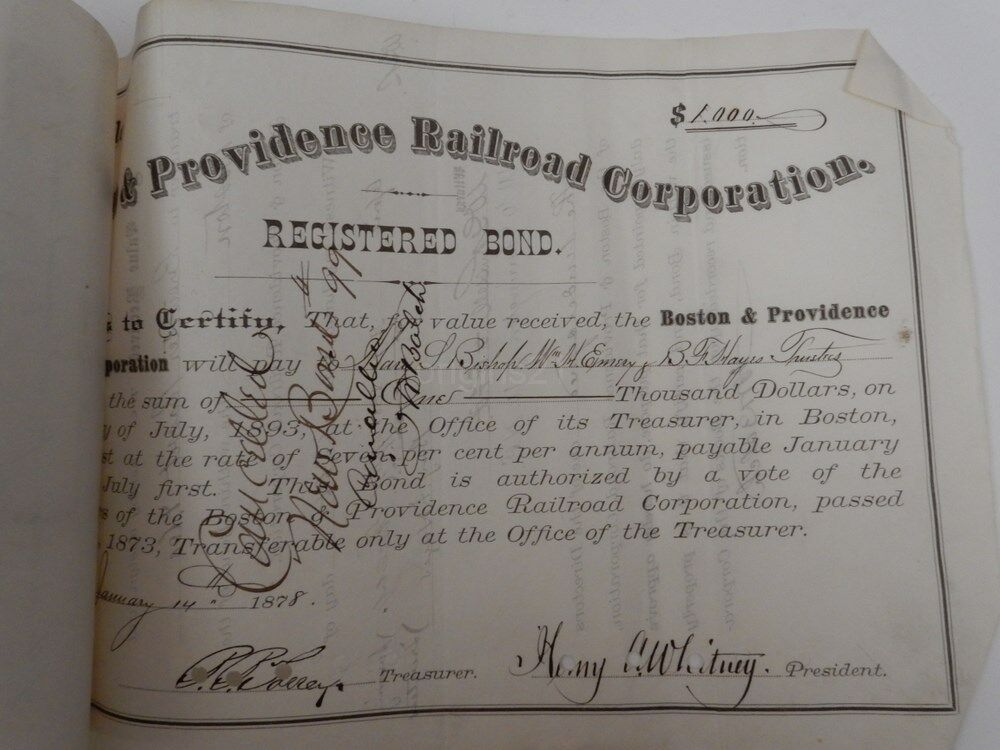 $ 1.000.
& Providence Railroad Corporation.
REGISTERED BOND.
to Certify, That, for value received, the Boston & Providence
poration will pay to S. Bishop Wm H. Emery & B. F. Hayes Trustees
the sum of One Thousand Dollars, on
y of July, 1893, at the Office of its Treasurer, in Boston,
st at the rate of Seven per cent per annum, payable January
July first. This Bond is authorized by a vote of the
s of the Boston & Providence Railroad Corporation, passed
, 1873, Transferable only at the Office of the Treasurer.
January 14th 1878.
Treasurer.
Henry A. Whitney. President.
Cancelled
New Bond 499
Cancelled